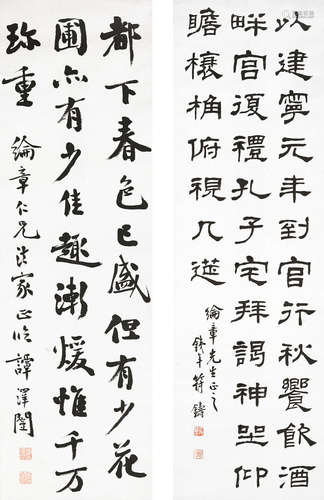 以建寧元年到官行秋饗飲酒
畔宮復禮孔子宅拜謁神坐仰
瞻榱桷俯視几筵
綸章先生正之
鐵年符鑄
都下春色已盛但有少花
圃亦有少佳趣漸煖惟千万
珍重 綸章仁兄法家正臨 譚澤闓